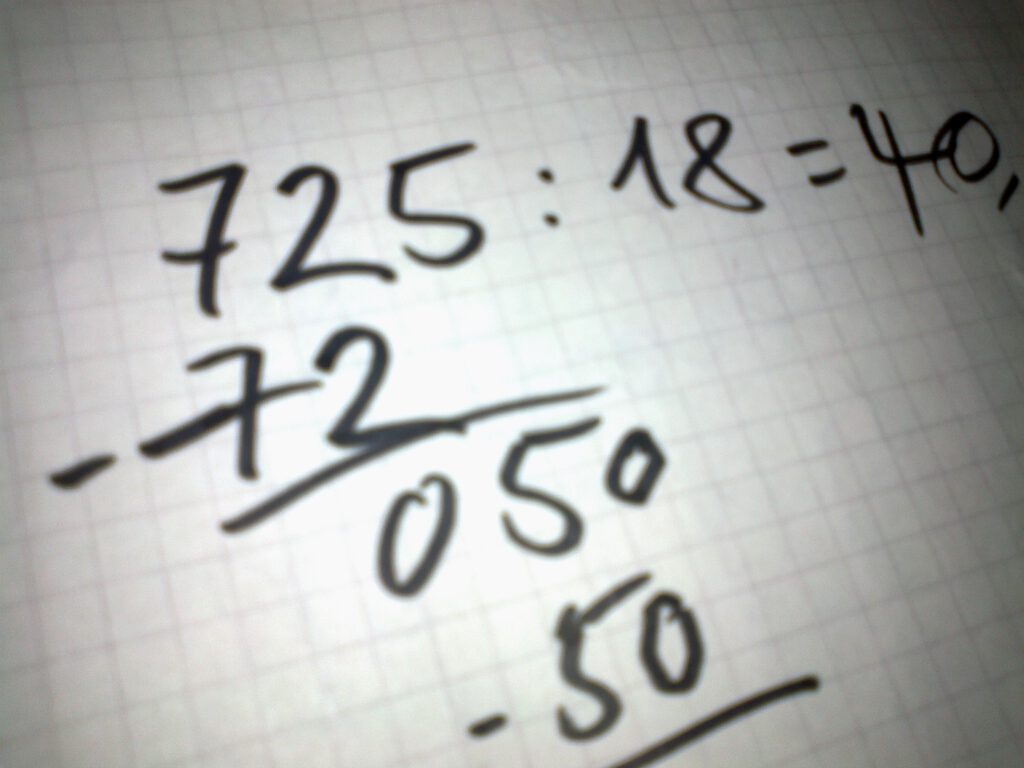 725 : 18 = 40,
- 72
050
- 50